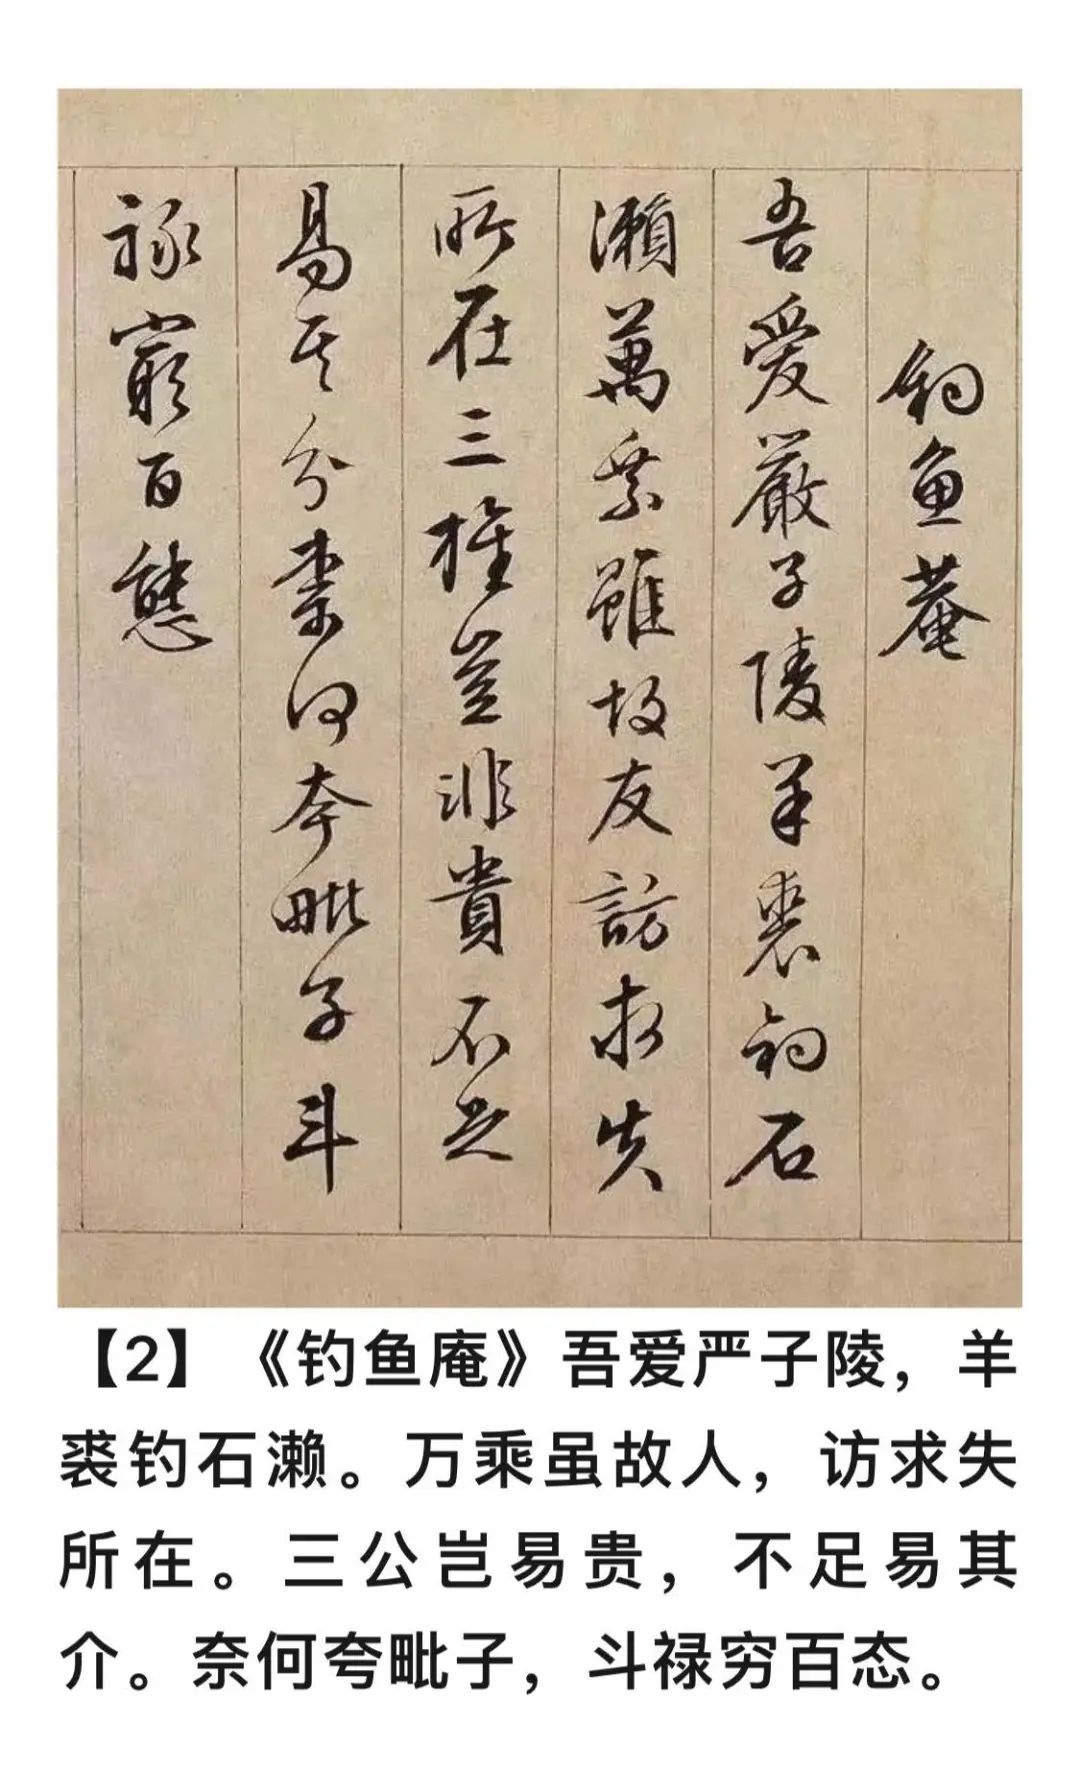 釣魚菴
吾愛嚴子陵羊裘釣石
瀨萬乘雖故友訪求失
所在三旌豈非貴不足
易其介柰何夸毗子斗
祿窮百態
【2】《钓鱼庵》吾爱严子陵，羊
裘钓石濑。万乘虽故人，访求失
所在。三公岂易贵，不足易其
介。奈何夸毗子，斗禄穷百态。